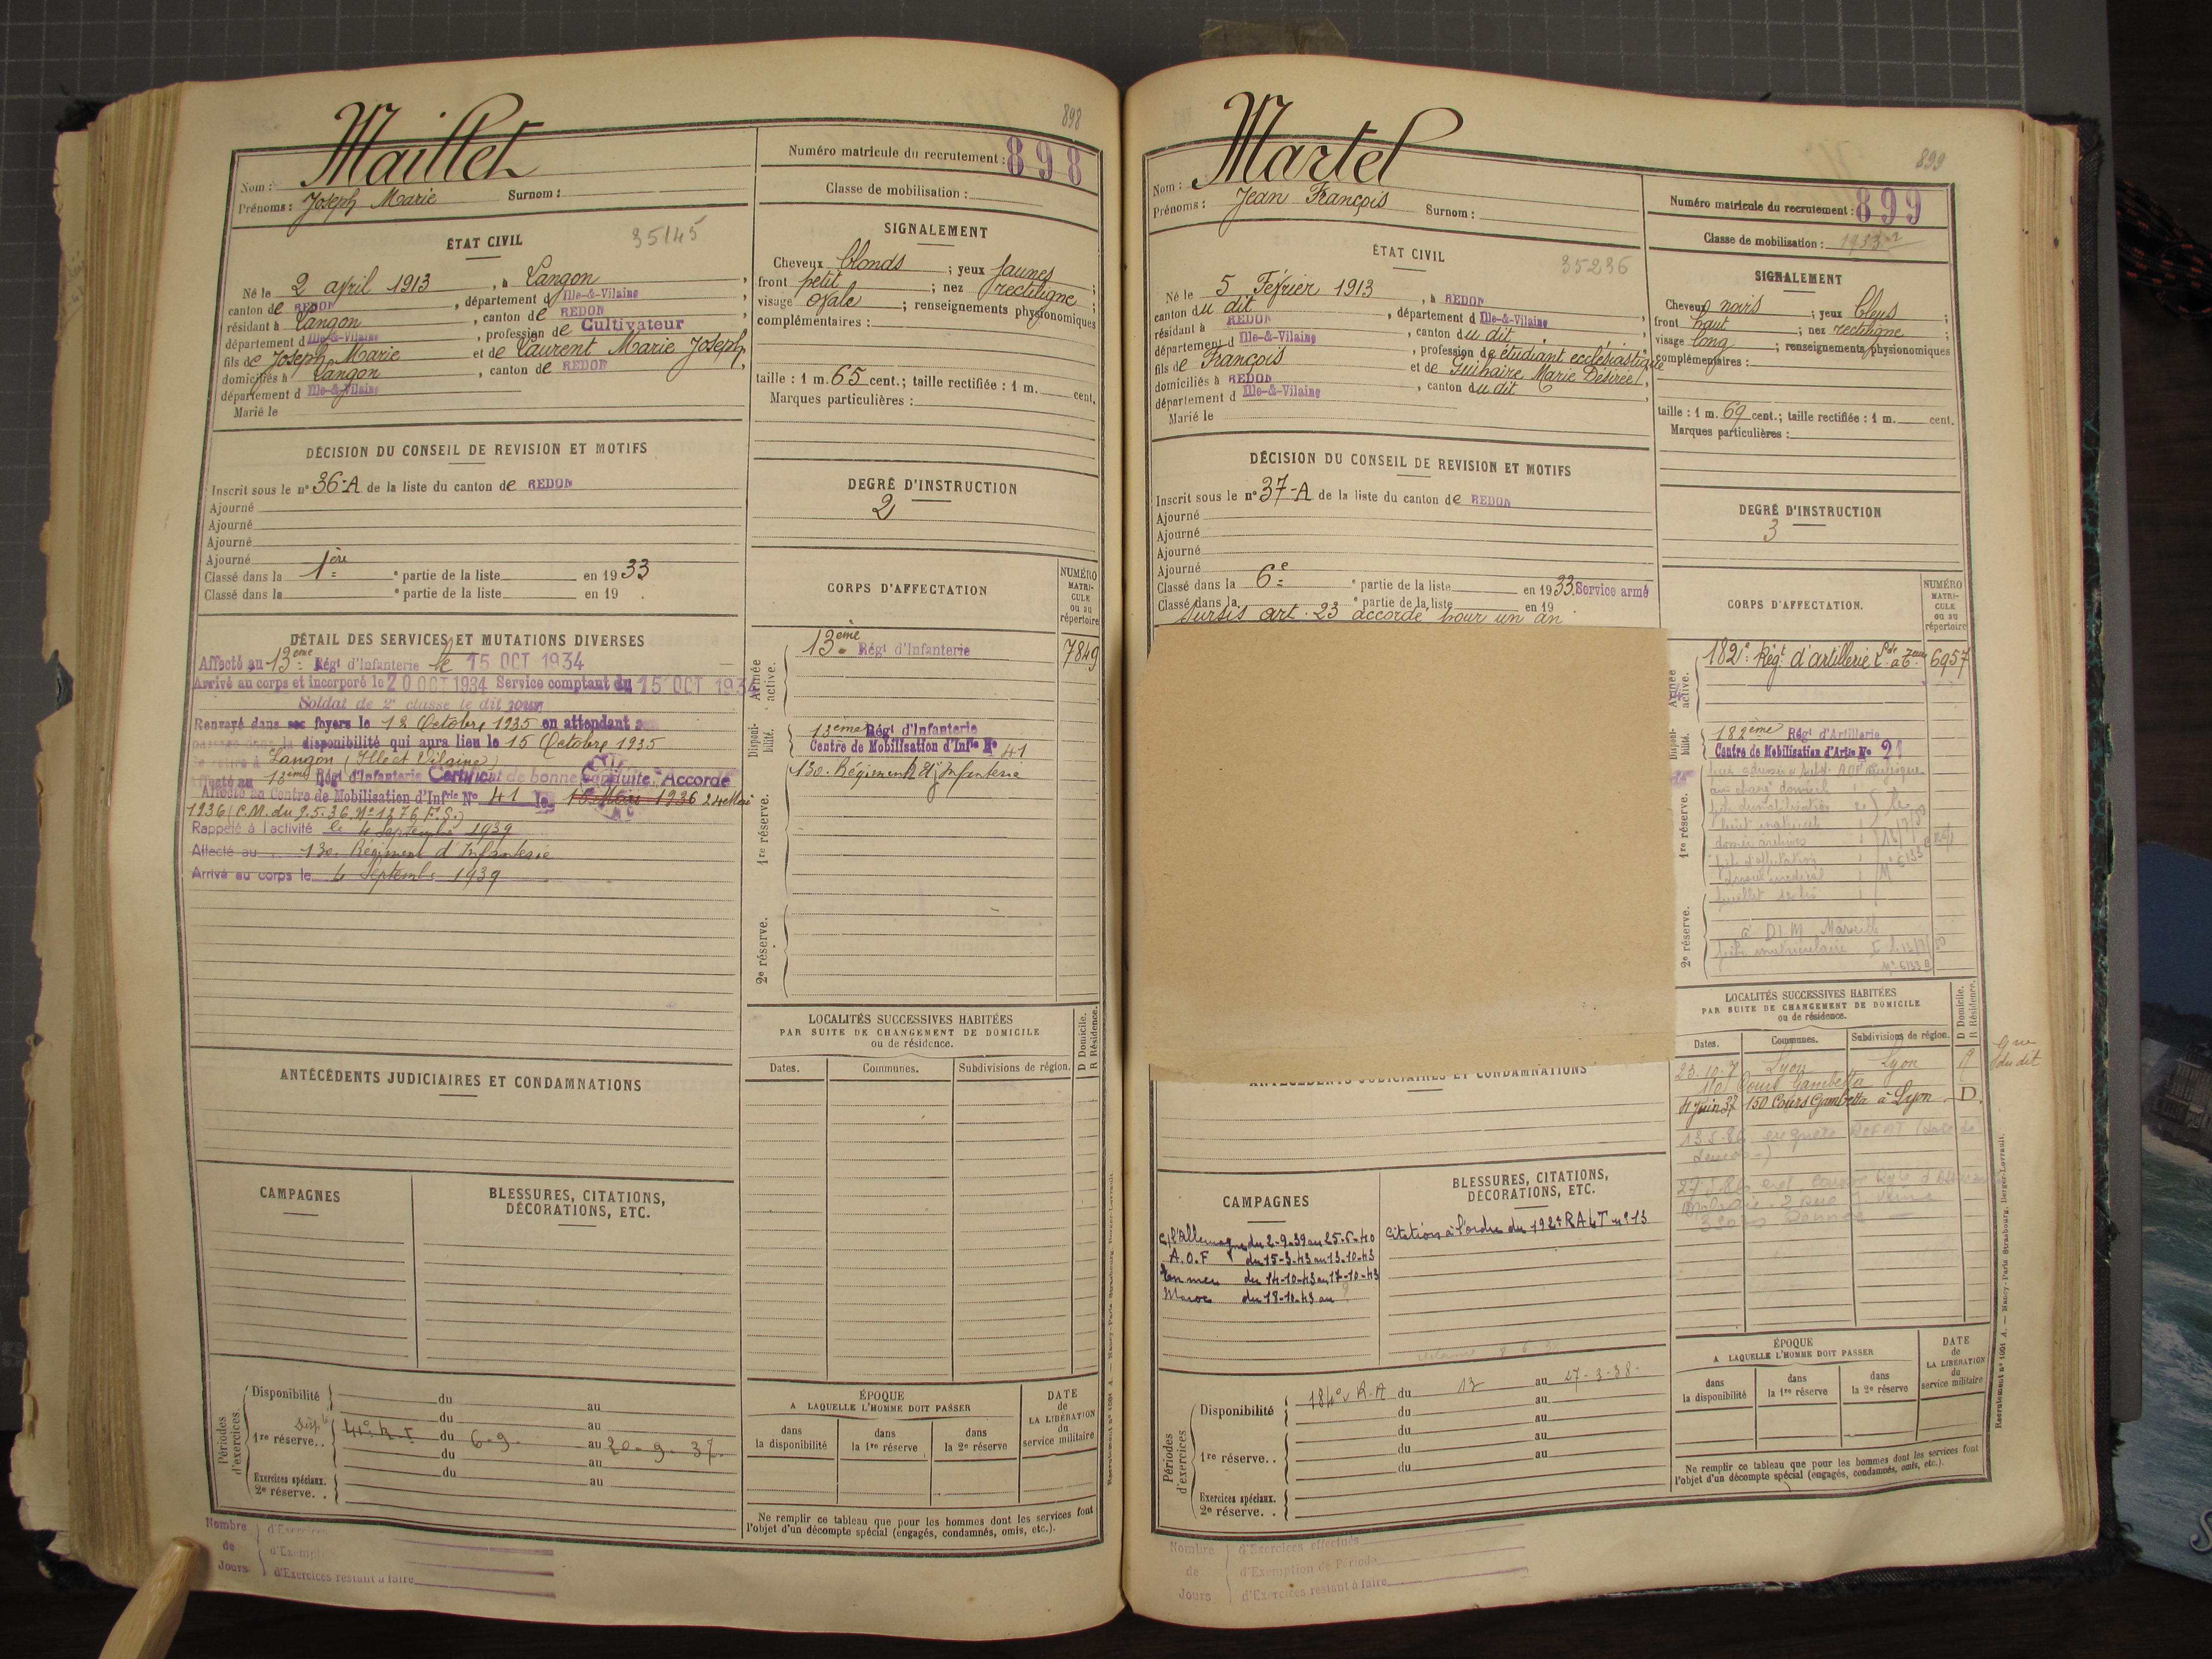 898
Nom : Maillet
Prénoms : Joseph Marie Surnom :
Numéro matricule du recrutement : 898
Classe de mobilisation :
ÉTAT CIVIL 35145
Né le 2 avril 1913, à Langon,
canton de REDON, département d Ille-&-Vilaine
résidant à Langon, canton de REDON,
département d Ille-&-Vilaine, profession de Cultivateur
fils de Joseph Marie et de Laurent Marie Joseph,
domiciliés à Langon, canton de REDON,
département d Ille-&-Vilaine
Marié le
SIGNALEMENT
Cheveux blonds ; yeux jaunes ;
front petit ; nez rectiligne ;
visage ovale ; renseignements physionomiques
complémentaires :
taille : 1 m. 65 cent.; taille rectifiée : 1 m. cent.
Marques particulières :
DÉCISION DU CONSEIL DE REVISION ET MOTIFS
Inscrit sous le n° 36-A de la liste du canton de REDON
Ajourné
Ajourné
Ajourné
Ajourné
Classé dans la 1ère partie de la liste en 1933
Classé dans la e partie de la liste en 19 .
DEGRÉ D'INSTRUCTION
2
DÉTAIL DES SERVICES ET MUTATIONS DIVERSES
Affecté au 13ème Régt d'Infanterie le 15 OCT 1934
Arrivé au corps et incorporé le 20 OCT 1934 Service comptant du 15 OCT 1934
Soldat de 2e classe le dit jour
Renvoyé dans ses foyers le 12 Octobre 1935 en attendant
passage dans la disponibilité qui aura lieu le 15 Octobre 1935
Se retire à Langon (Ille et Vilaine)
Affecté au 13ème Régt d'Infanterie Certificat de bonne conduite "Accordé
Affecté au Centre de Mobilisation d'Infrie N° 41 le 15 Mai 1936 24 Mai
1936 (C.M. du 9.5.36. N° 1876 F.S.)
Rappelé à l'activité le 4 Septembre 1939
Affecté au 130. Régiment d'Infanterie
Arrivé au corps le 4 Septembre 1939
CORPS D'AFFECTATION
NUMÉRO MATRICULE ou au répertoire
Armée active.
13ème Régt d'Infanterie 7849
Disponibilité.
13ème Régt d'Infanterie
Centre de Mobilisation d'Infie N° 41
130. Régiment d'Infanterie
1re réserve.
2e réserve.
LOCALITÉS SUCCESSIVES HABITÉES
PAR SUITE DE CHANGEMENT DE DOMICILE
ou de résidence.
D Domicile.
R Résidence.
Dates. Communes. Subdivisions de région.
ANTÉCÉDENTS JUDICIAIRES ET CONDAMNATIONS
CAMPAGNES
BLESSURES, CITATIONS,
DÉCORATIONS, ETC.
Périodes d'exercices.
Disponibilité du au
du au
1re réserve. . 41e R.I du 6-9 au 20-9-37
du au
du au
Exercices spéciaux.
2e réserve. .
ÉPOQUE
A LAQUELLE L'HOMME DOIT PASSER
dans la disponibilité
dans la 1re réserve
dans la 2e réserve
DATE de LA LIBÉRATION du service militaire
Ne remplir ce tableau que pour les hommes dont les services font
l'objet d'un décompte spécial (engagés, condamnés, omis, etc.).
Nombre de Jours
d'Exercices
d'Exempt
d'Exercices restant à faire
899
Nom : Martel
Prénoms : Jean François Surnom :
Numéro matricule du recrutement : 899
Classe de mobilisation :
ÉTAT CIVIL 35236
Né le 5 Février 1913, à REDON
canton du dit, département d Ille-&-Vilaine,
résidant à REDON, canton du dit,
département d Ille-&-Vilaine, profession de étudiant ecclésiastique
fils de François et de Guihaire Marie Désirée,
domiciliés à REDON, canton du dit,
département d Ille-&-Vilaine
Marié le
SIGNALEMENT
Cheveux noirs ; yeux bleus ;
front haut ; nez rectiligne ;
visage long ; renseignements physionomiques
complémentaires :
taille : 1 m. 69 cent.; taille rectifiée : 1 m. cent.
Marques particulières :
DÉCISION DU CONSEIL DE REVISION ET MOTIFS
Inscrit sous le n° 37-A de la liste du canton de REDON
Ajourné
Ajourné
Ajourné
Ajourné
Classé dans la 6e partie de la liste en 1933. Service armé
Classé dans la e partie de la liste en 19
Sursis art. 23 accordé pour un an
DEGRÉ D'INSTRUCTION
3
CORPS D'AFFECTATION.
NUMÉRO MATRICULE ou au répertoire
Armée active.
182e Régt d'artillerie 6957
Disponibilité.
182ème Régt d'Artillerie
Centre de Mobilisation d'Artie N° 21
1re réserve.
2e réserve.
à DIM Marseille
LOCALITÉS SUCCESSIVES HABITÉES
PAR SUITE DE CHANGEMENT DE DOMICILE
ou de résidence.
D Domicile.
R Résidence.
Dates. Communes. Subdivisions de région.
Lyon Lyon
Cours Gambetta
4 Juin 37 150 Cours Gambetta à Lyon D.
ANTÉCÉDENTS JUDICIAIRES ET CONDAMNATIONS
CAMPAGNES
c/l'Allemagne du 2-9-39 au 25-6-40
A.O.F du 15-3-43 au 13-10-43
En mer du 14-10-43 au 17-10-43
Maroc du 18-10-43 au ?
BLESSURES, CITATIONS,
DÉCORATIONS, ETC.
Citation à l'ordre du 192e RALT n° 13
Périodes d'exercices.
Disponibilité 184e R.A du 12 au 27-3-38-
du au
du au
1re réserve. . du au
du au
Exercices spéciaux.
2e réserve. .
ÉPOQUE
A LAQUELLE L'HOMME DOIT PASSER
dans la disponibilité
dans la 1re réserve
dans la 2e réserve
DATE de LA LIBÉRATION du service militaire
Ne remplir ce tableau que pour les hommes dont les services font
l'objet d'un décompte spécial (engagés, condamnés, omis, etc.).
Nombre de Jours
d'Exercices effectués
d'Exemption de Période
d'Exercices restant à faire